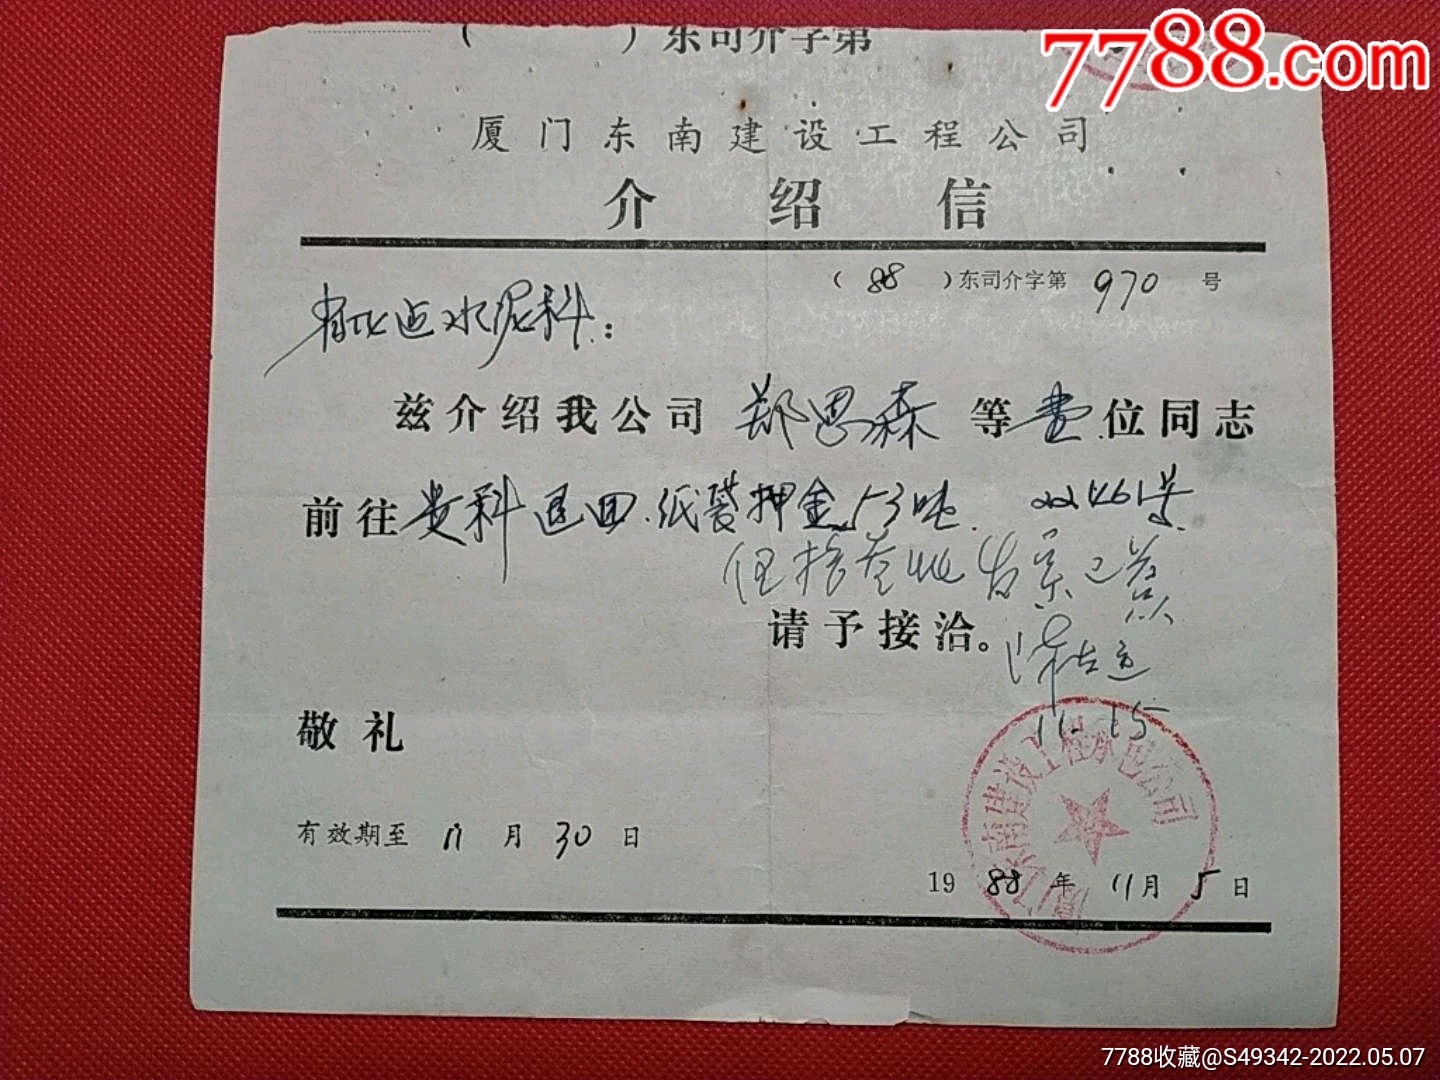 ( ）东司介字第
7788.com
厦门东南建设工程公司
介绍信
（88）东司介字第970号
水泥科：
兹介绍我公司郑思森等壹位同志
前往贵科退回纸袋押金53吨.
请予接洽。
11.15
敬礼
厦门东南建设工程承包公司
有效期至11月30日
1988年11月5日
7788收藏@S49342-2022.05.07